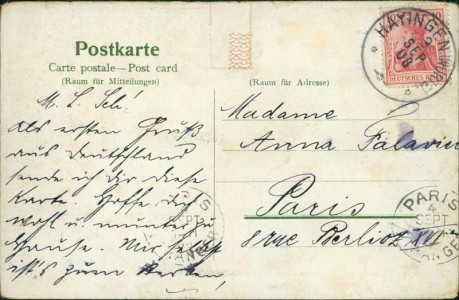 Postkarte
Carte postale—Post card
(Raum für Mitteilungen)
(Raum für Adresse)
HAYINGEN
SEP
08
DEUTSCHES
M. L. Sch.
Als ersten Gruß
aus Deutschland
sende ich dir diese
Karte. Hoffe dich
wohl u. munter zu
Hause. Mir selbst
ist's zum
Madame
Anna
Paris
8 rue Berlioz
PARIS
SEPT
PARIS
SEPT